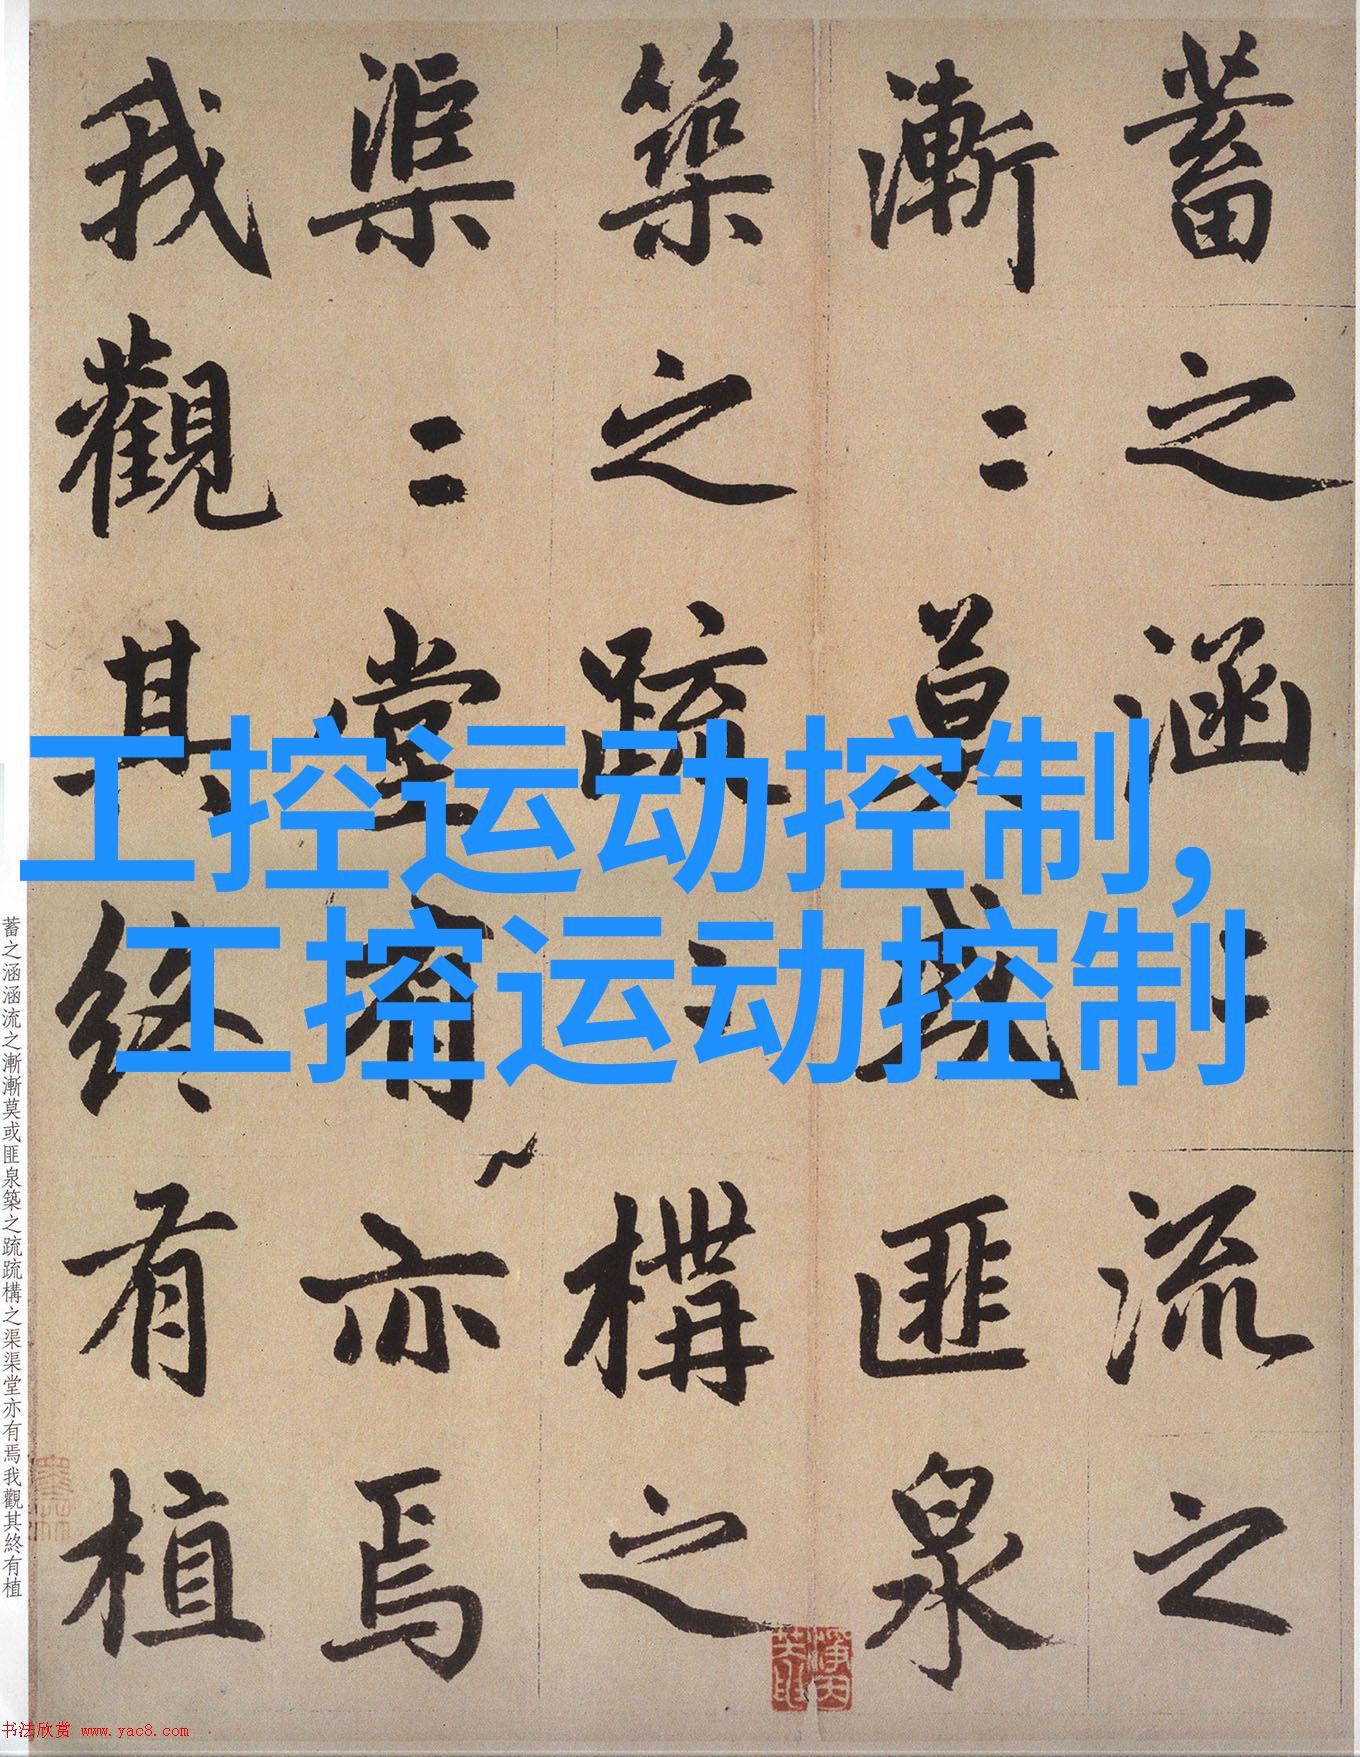 工控运动控制,
工控运动控制
蓄之涵〻流之
漸〻莫或匪泉
築之踈〻構之
渠〻堂有亦焉
我觀其終有植
蓄之涵涵流之漸漸莫或匪泉築之疏疏構之渠渠堂亦有焉我觀其終有植
书法欣赏 www.yac8.com